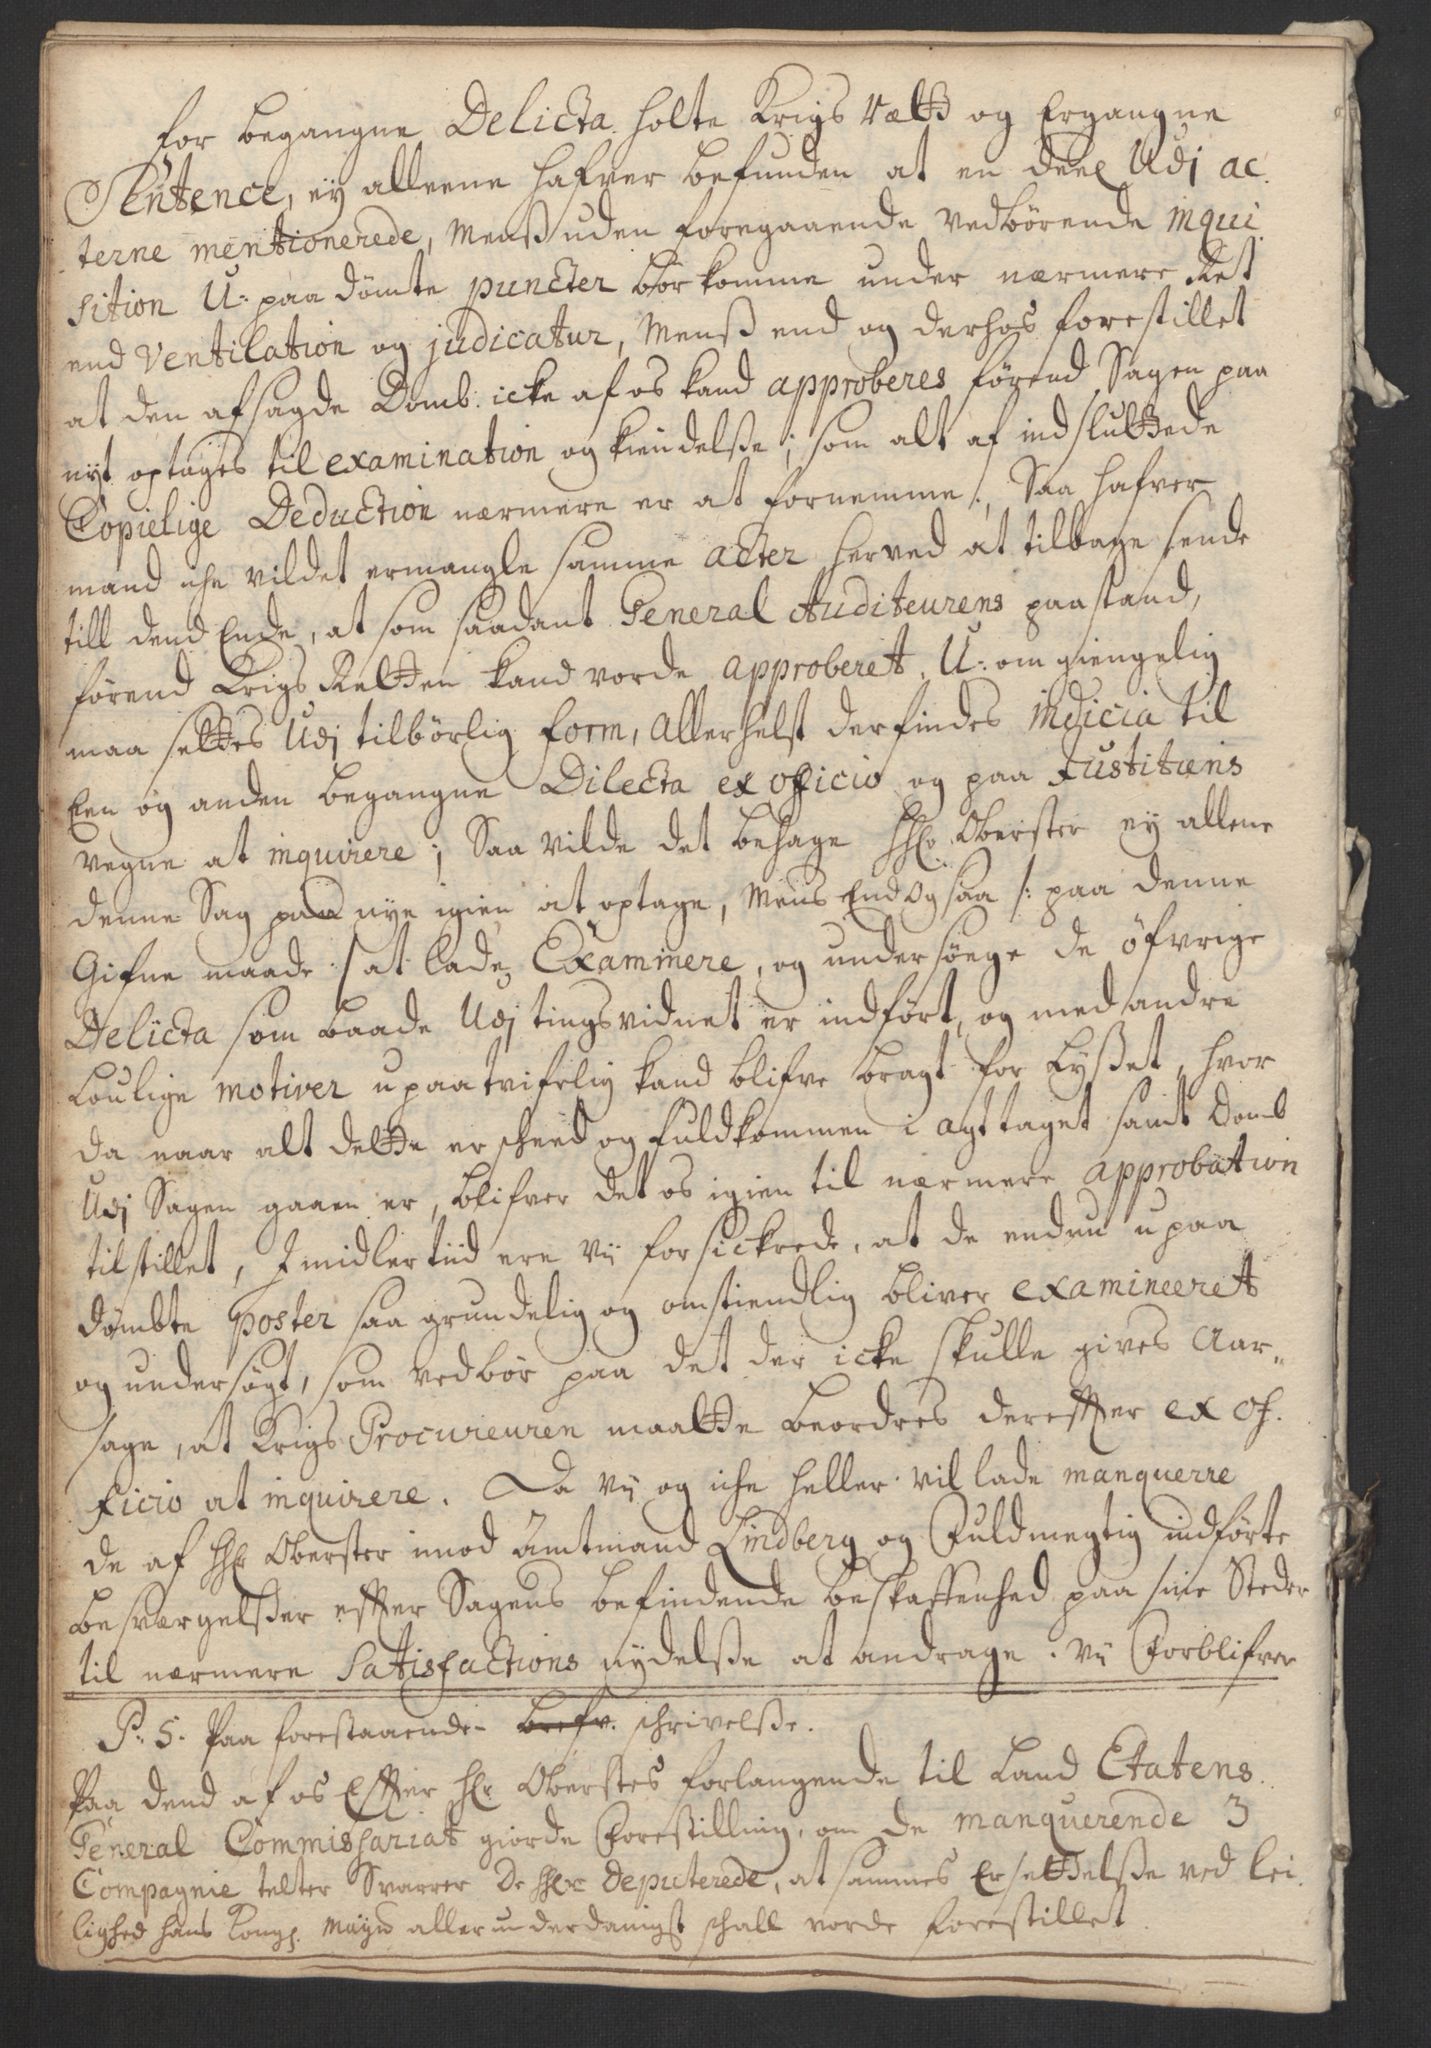 for begangne Delicta holte Krigs Rætt og Ergangne
Sentence, ey alleene hafver befunden at en deel Udj ac
terne mentionerede, Menß uden foregaaende vedbörende inqui
sition U-paadömte puncter bör komme under nærmere Ret
end Ventilation og judicatur, Menß end og derhos forestillet
at den afsagde Domb icke af os kand approberes förend Sagen paa
nyt optages til examination og kiendelße; som alt af indsluttede
Copielige Deduction nærmere er at fornemme; Saa hafver
mand iche vildet ermangle samme acter herved at tilbage sende
till dend Ende, at som saadant General Auditeurens paastand,
förend Krigs Retten kand vorde approberet, U-omgiengelig
maa settes Udj tilbörlig form, Allerhelst der findes indicia til
Een og anden begangne Dilecta ex officio og paa Justitiens
vegne at inquirere; Saa vilde det behage Hr. Oberster ey allene
denne Sag paa nye igien at optage, Mens End og saa /: paa denne
Gifne maade :/ at lade Examinere, og undersöege de öfvrige
Delicta som baade Udj tingsvidnet er indfört, og med andre
Loulige motiver upaatvifelig kand blifve bragt for Lyßet, hvor
da naar alt dette er scheed og fuldkommen i agt taget samt Domb
Udj Sagen gaaen er, blifver det os igien til nærmere approbation
tilstillet, Imidlertiid ere Vij forsickrede, at de endnu upaa
dömbte poster saa grundelig og omstiendlig bliver examineeret
og undersögt, som vedbör paa det der icke skulle gives Aar„
sage, at Krigs Procureuren maatte beordres derefter ex of.
ficio at inquirere. Da Vij og iche heller vil lade manquerre
de af Hr. Oberster imod Amtmand Lindberg og Fuldmegtig indförte
besværgelßer efter Sagens befindende beskaffenhed paa sine Steder
til nærmere Satisfactions nydelße at andrage. Vij Forblifver
P. S. Paa forestaaende brefv. schrivelße.
Paa dend af os Efter Hr. Oberstes forlangende til Land Etatens
General Commissariat giorde Forestilling, om de manquerende 3
Compagnie telter Svarrer De Hrr Deputerede, at sammes Ersettelße ved lei
lighed hans Kongl. Mayts allerunderdanigst schall vorde forestillet.